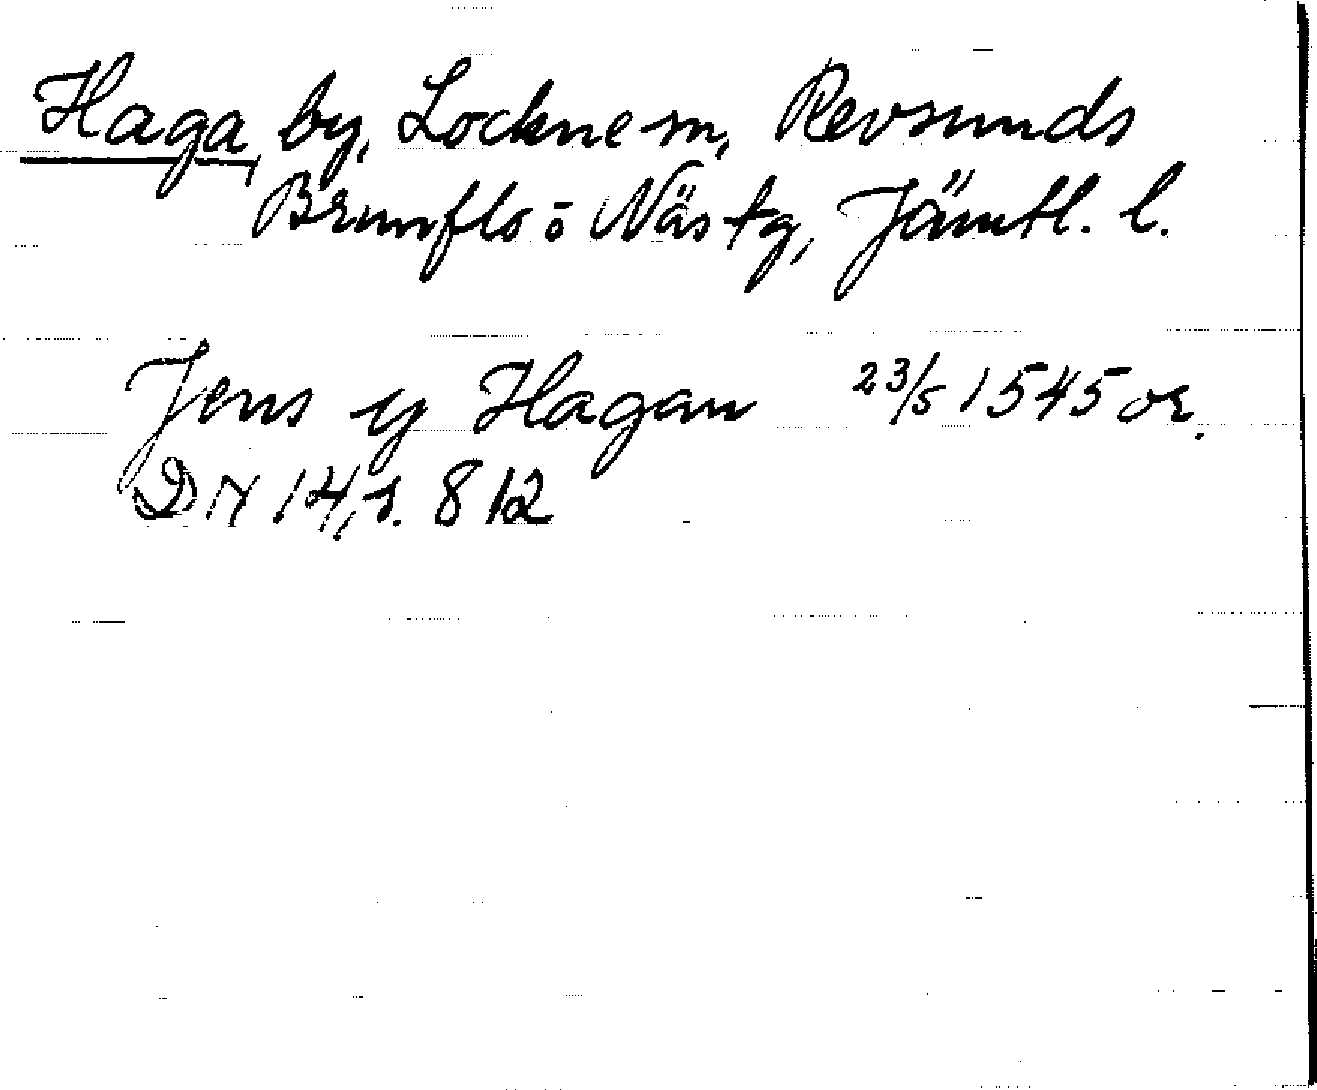 Haga, by, Lockne sn, Revsunds
Brunflo o Näs tg, Jämtl. l.
Jens y Hagan 23/5 1545 or.
DN 14, s. 812